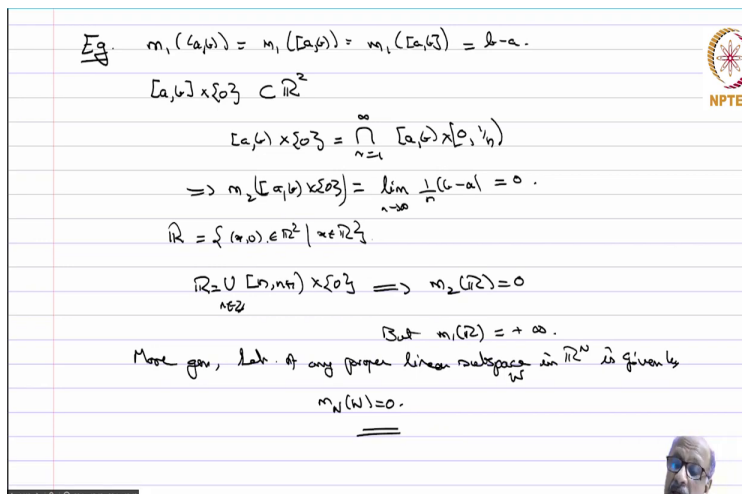 Eg. m₁((a,b)) = m₁([a,b)) = m₁([a,b]) = b-a.
[a,b] × {0} ⊂ ℝ²
[a,b) × {0} = ∩_{n=1}^{∞} [a,b) × [0, 1/n)
⟹ m₂([a,b) × {0}) = lim_{n→∞} 1/n (b-a) = 0.
ℝ = {(x,0) ∈ ℝ² | x ∈ ℝ}.
ℝ = ∪_{n∈ℤ} [n,n+1) × {0} ⟹ m₂(ℝ) = 0
But m₁(ℝ) = +∞.
More gen, Leb. of any proper linear subspace W in ℝᴺ is given by
m_N(W) = 0.
NPTEL